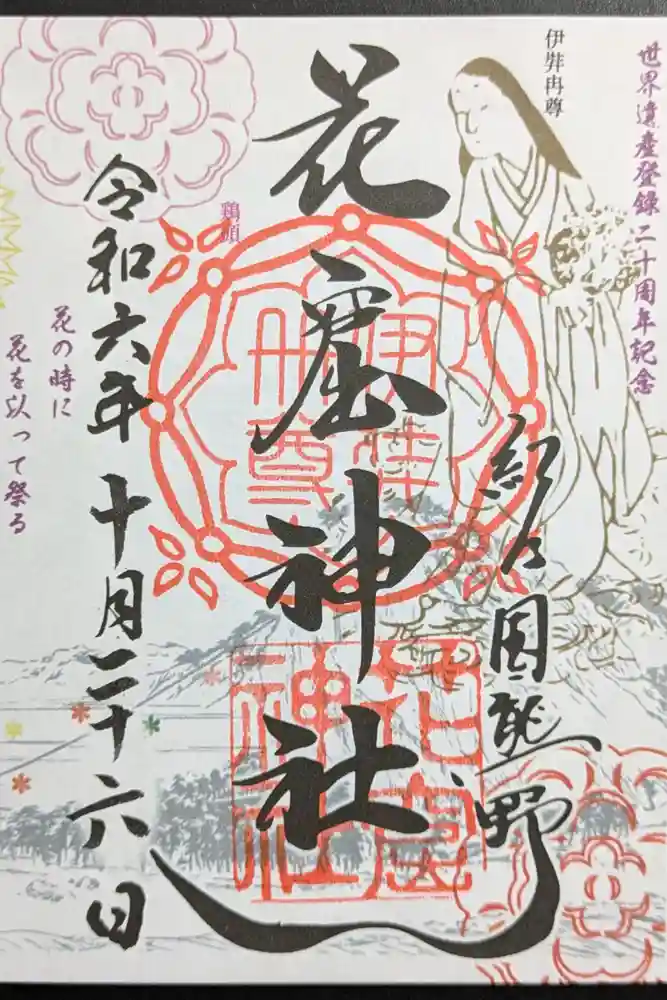 世界遺産登録二十周年記念
伊弉冉尊
紀の国熊野
花窟神社
伊弉
冉尊
花窟
神社
鶏頭
令和六年十月二十六日
花の時に
花を以って祭る